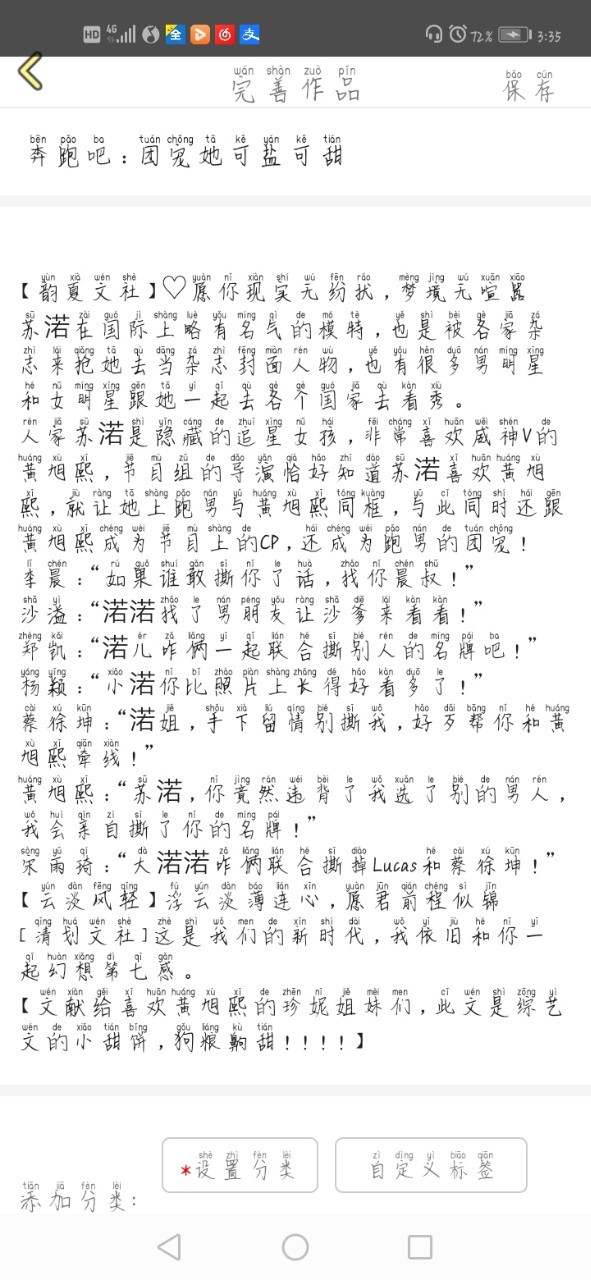 HD 4G 全 支 72% 3:35
完善作品
保存
奔跑吧：团宠她可盐可甜
【韵夏文社】♡愿你现实无纷扰，梦境无喧嚣
苏渃在国际上略有名气的模特，也是被各家杂
志来抢她去当杂志封面人物，也有很多男明星
和女明星跟她一起去各个国家去看秀。
人家苏渃是隐藏的追星女孩，非常喜欢威神V的
黄旭熙，节目组的导演恰好知道苏渃喜欢黄旭
熙，就让她上跑男与黄旭熙同框，与此同时还跟
黄旭熙成为节目上的CP，还成为跑男的团宠！
李晨：“如果谁敢撕你了话，找你晨叔！”
沙溢：“渃渃找了男朋友让沙爹来看看！”
郑凯：“渃儿咋俩一起联合撕别人的名牌吧！”
杨颖：“小渃你比照片上长得好看多了！”
蔡徐坤：“渃姐，手下留情别撕我，好歹帮你和黄
旭熙牵线！”
黄旭熙：“苏渃，你竟然违背了我选了别的男人，
我会亲自撕了你的名牌！”
宋雨琦：“大渃渃咋俩联合撕掉Lucas和蔡徐坤！”
【云淡风轻】浮云淡薄连心，愿君前程似锦
[清划文社]这是我们的新时代，我依旧和你一
起幻想第七感。
【文献给喜欢黄旭熙的珍妮姐妹们，此文是综艺
文的小甜饼，狗粮齁甜！！！！】
添加分类：
*设置分类
自定义标签